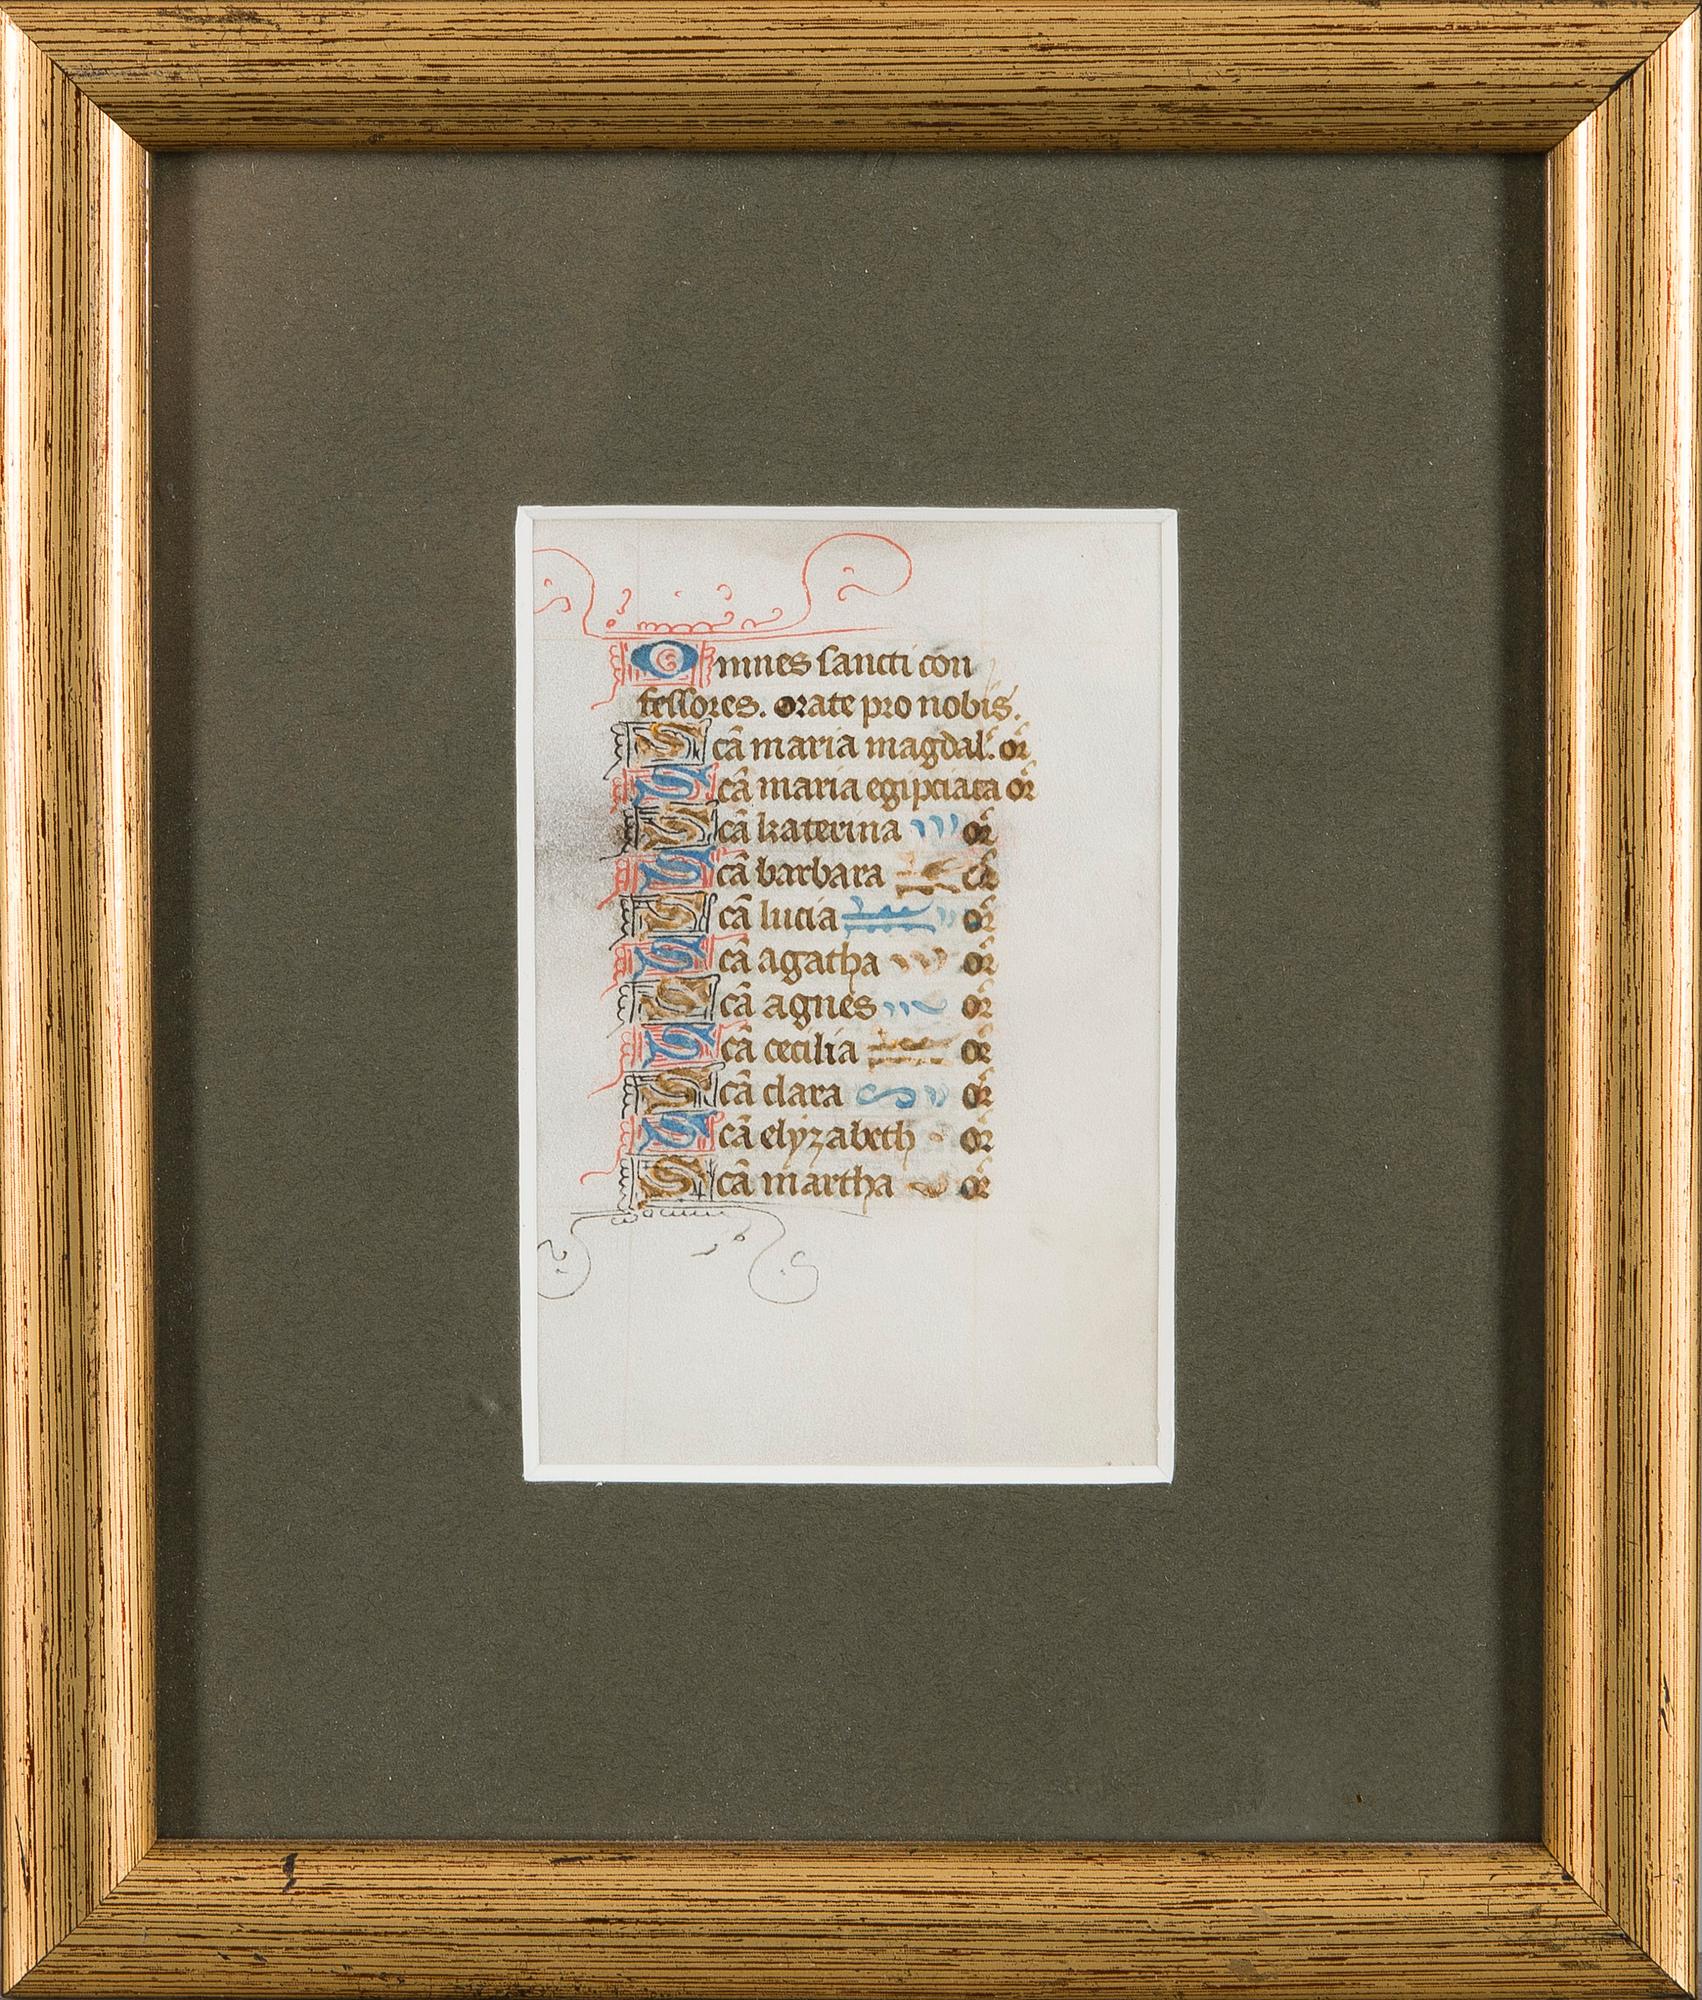 Omnes sancti con
fessores. orate pro nobis.
Scã maria magdal'. or̃
Scã maria egipciaca or̃
Scã katerina or̃
Scã barbara or̃
Scã lucia or̃
Scã agatha or̃
Scã agnes or̃
Scã cecilia or̃
Scã clara or̃
Scã elyzabeth or̃
Scã martha or̃